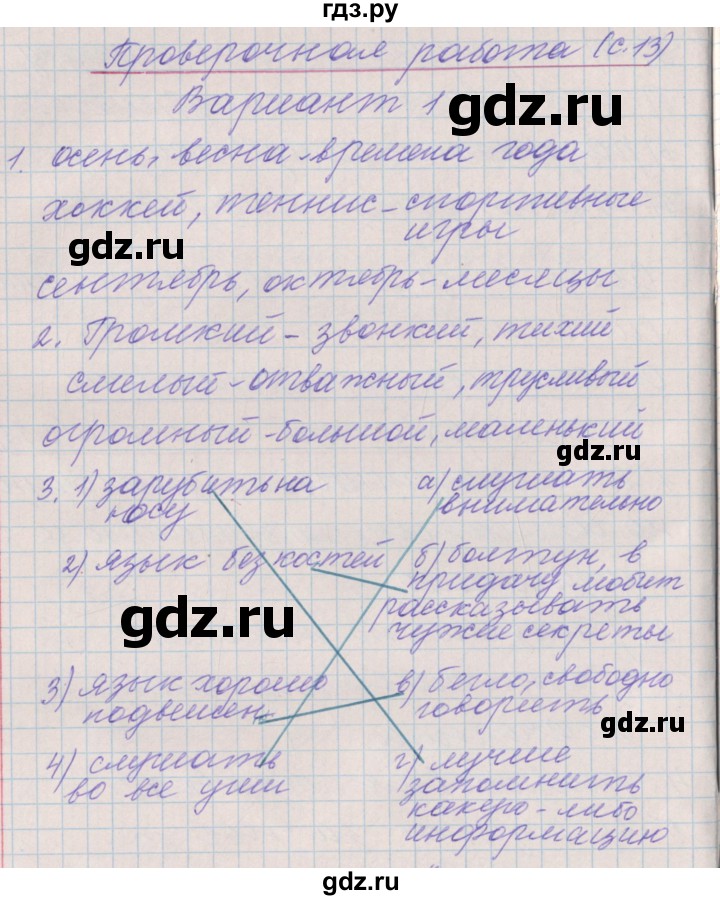 гдз.ру
Проверочная работа (с.13)
Вариант 1
gdz.ru
1. осень, весна-времена года
хоккей, теннис-спортивные
игры
gdz.ru
сентябрь, октябрь-месяцы
2. Громкий-звонкий, тихий
смелый-отважный, трусливый
огромный-большой, маленький
gdz.ru
3. 1) зарубить на
носу
а) слушать
внимательно
2) язык без костей
б) болтун, в
придачу любит
рассказывать
чужие секреты
gdz.ru
3) язык хорошо
подвешен
в) бегло, свободно
говорить
gdz.ru
4) слушать
во все уши
г) лучше
запомнить
какую-либо
информацию
gdz.ru